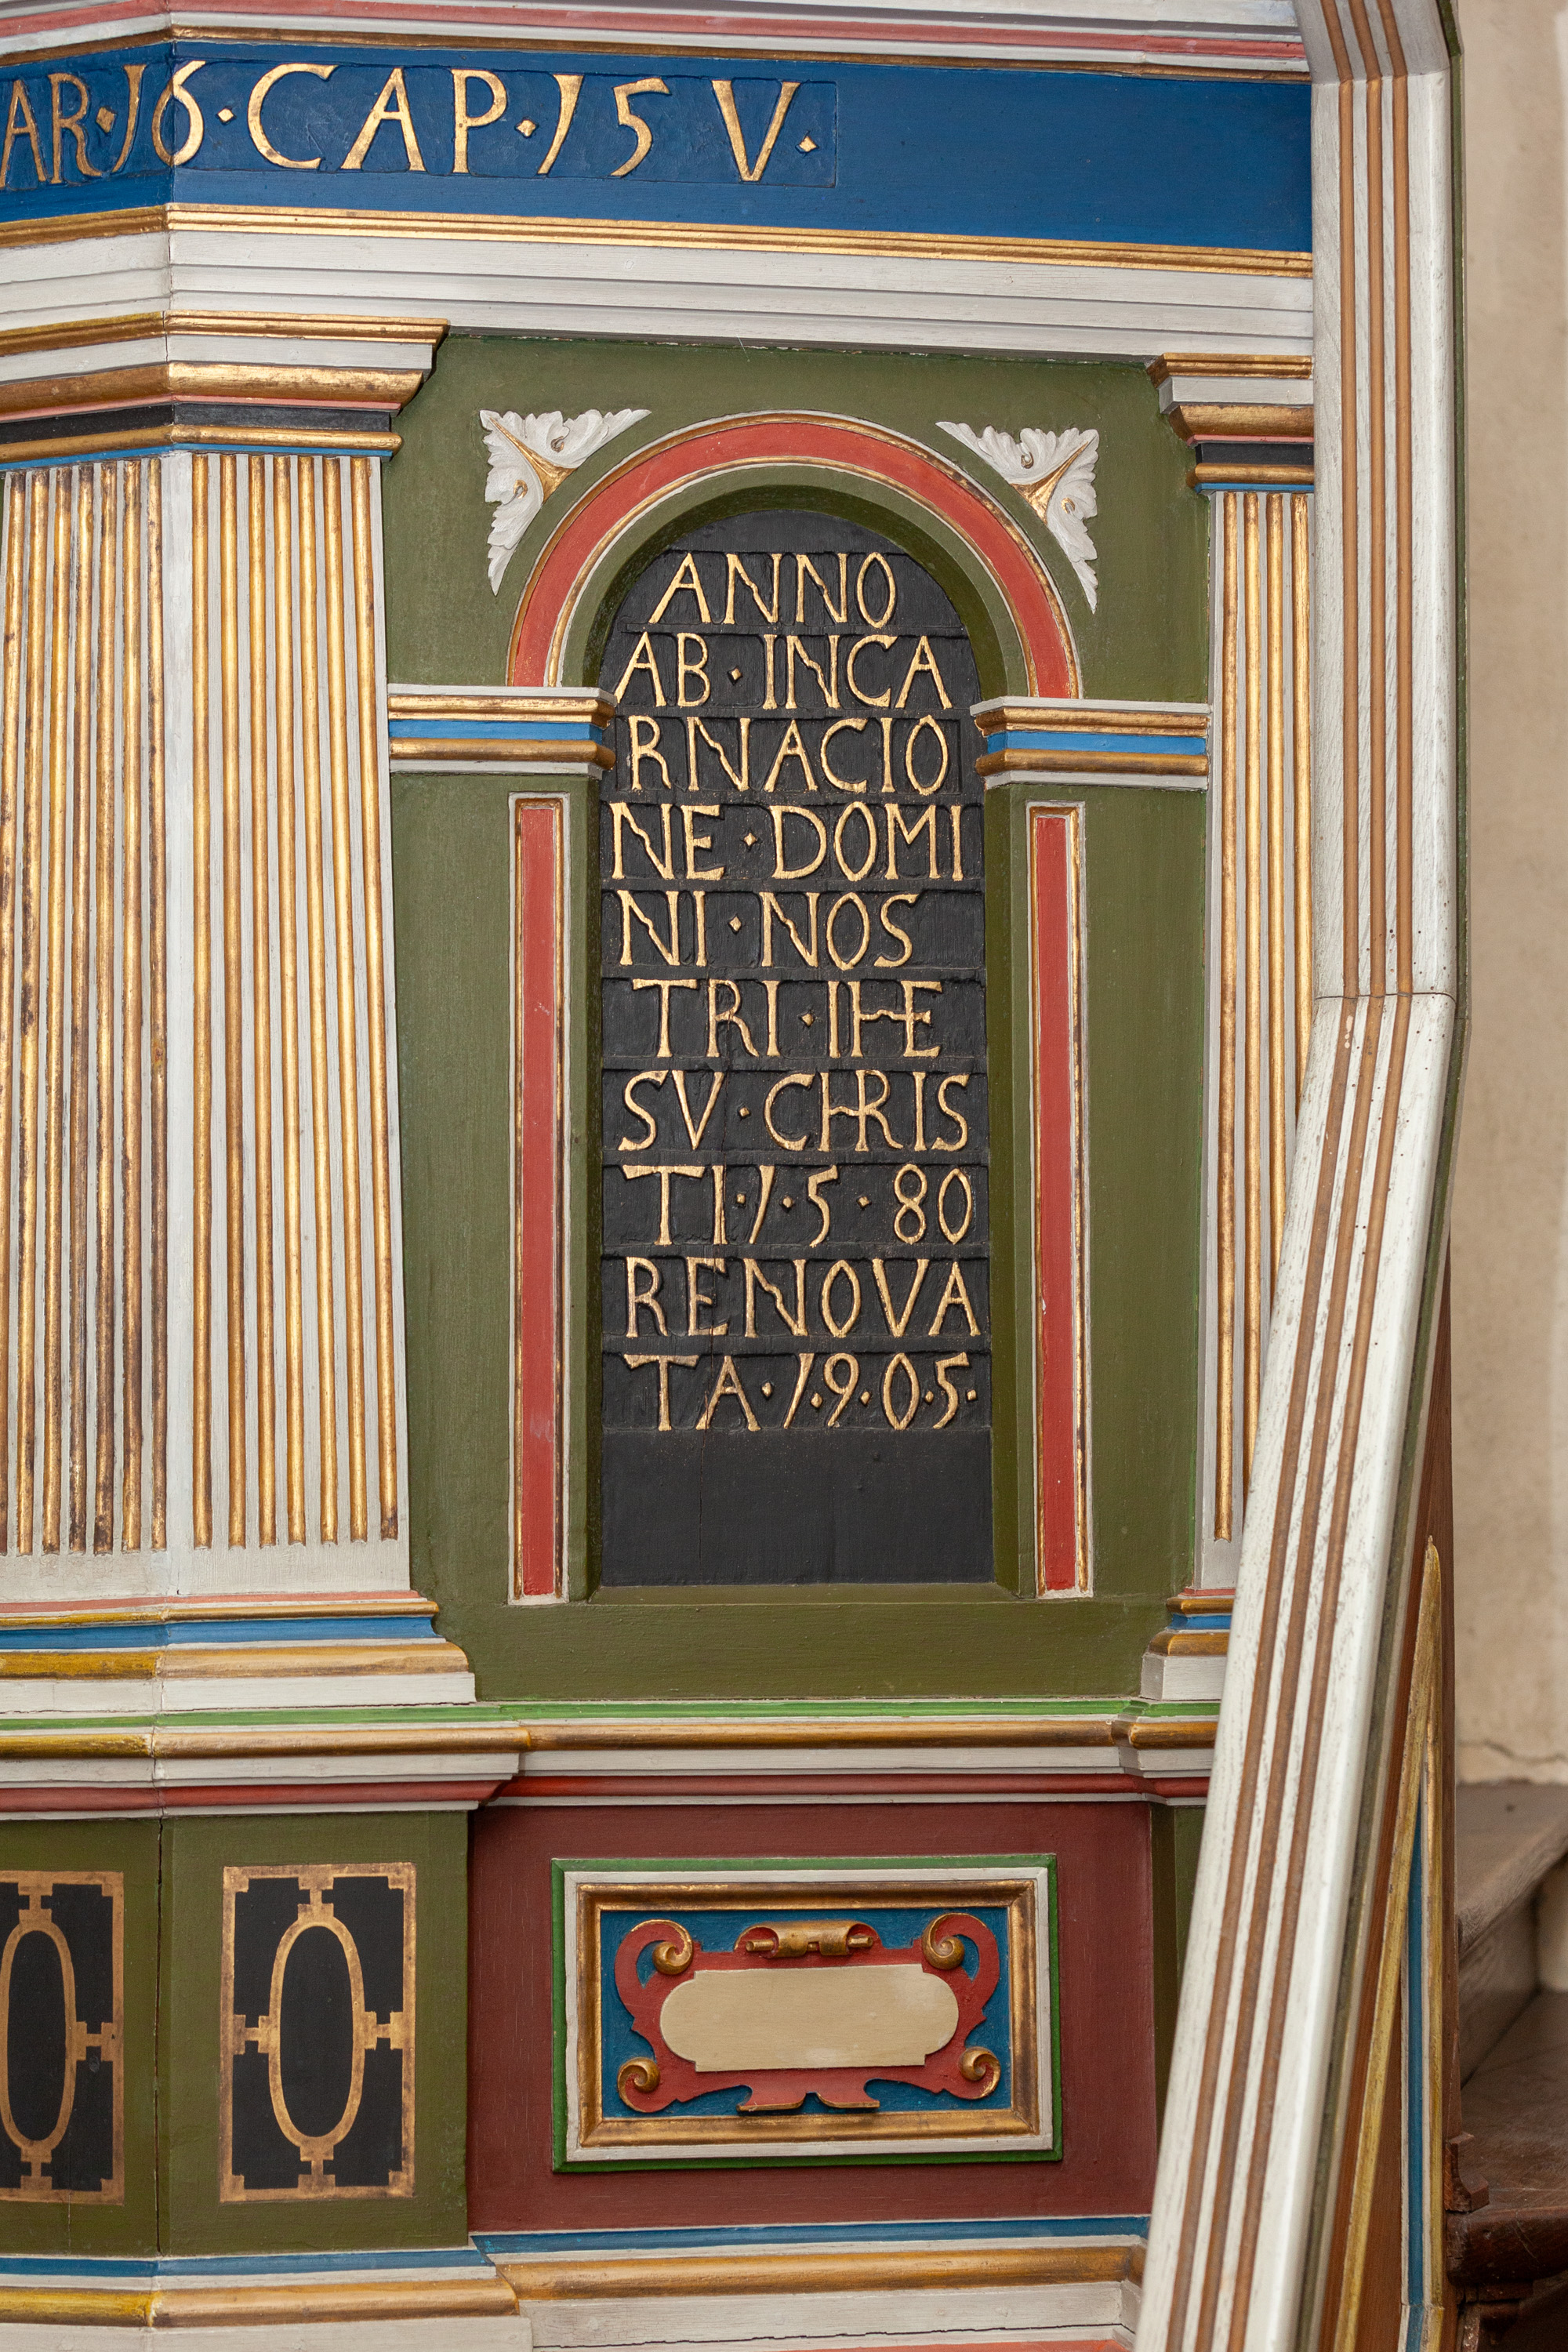 AR·16·CAP·15 V·
ANNO
AB·INCA
RNACIO
NE·DOMI
NI·NOS
TRI·IHE
SV·CHRIS
TI·1·5·80
RENOVA
TA·1·9·0·5·